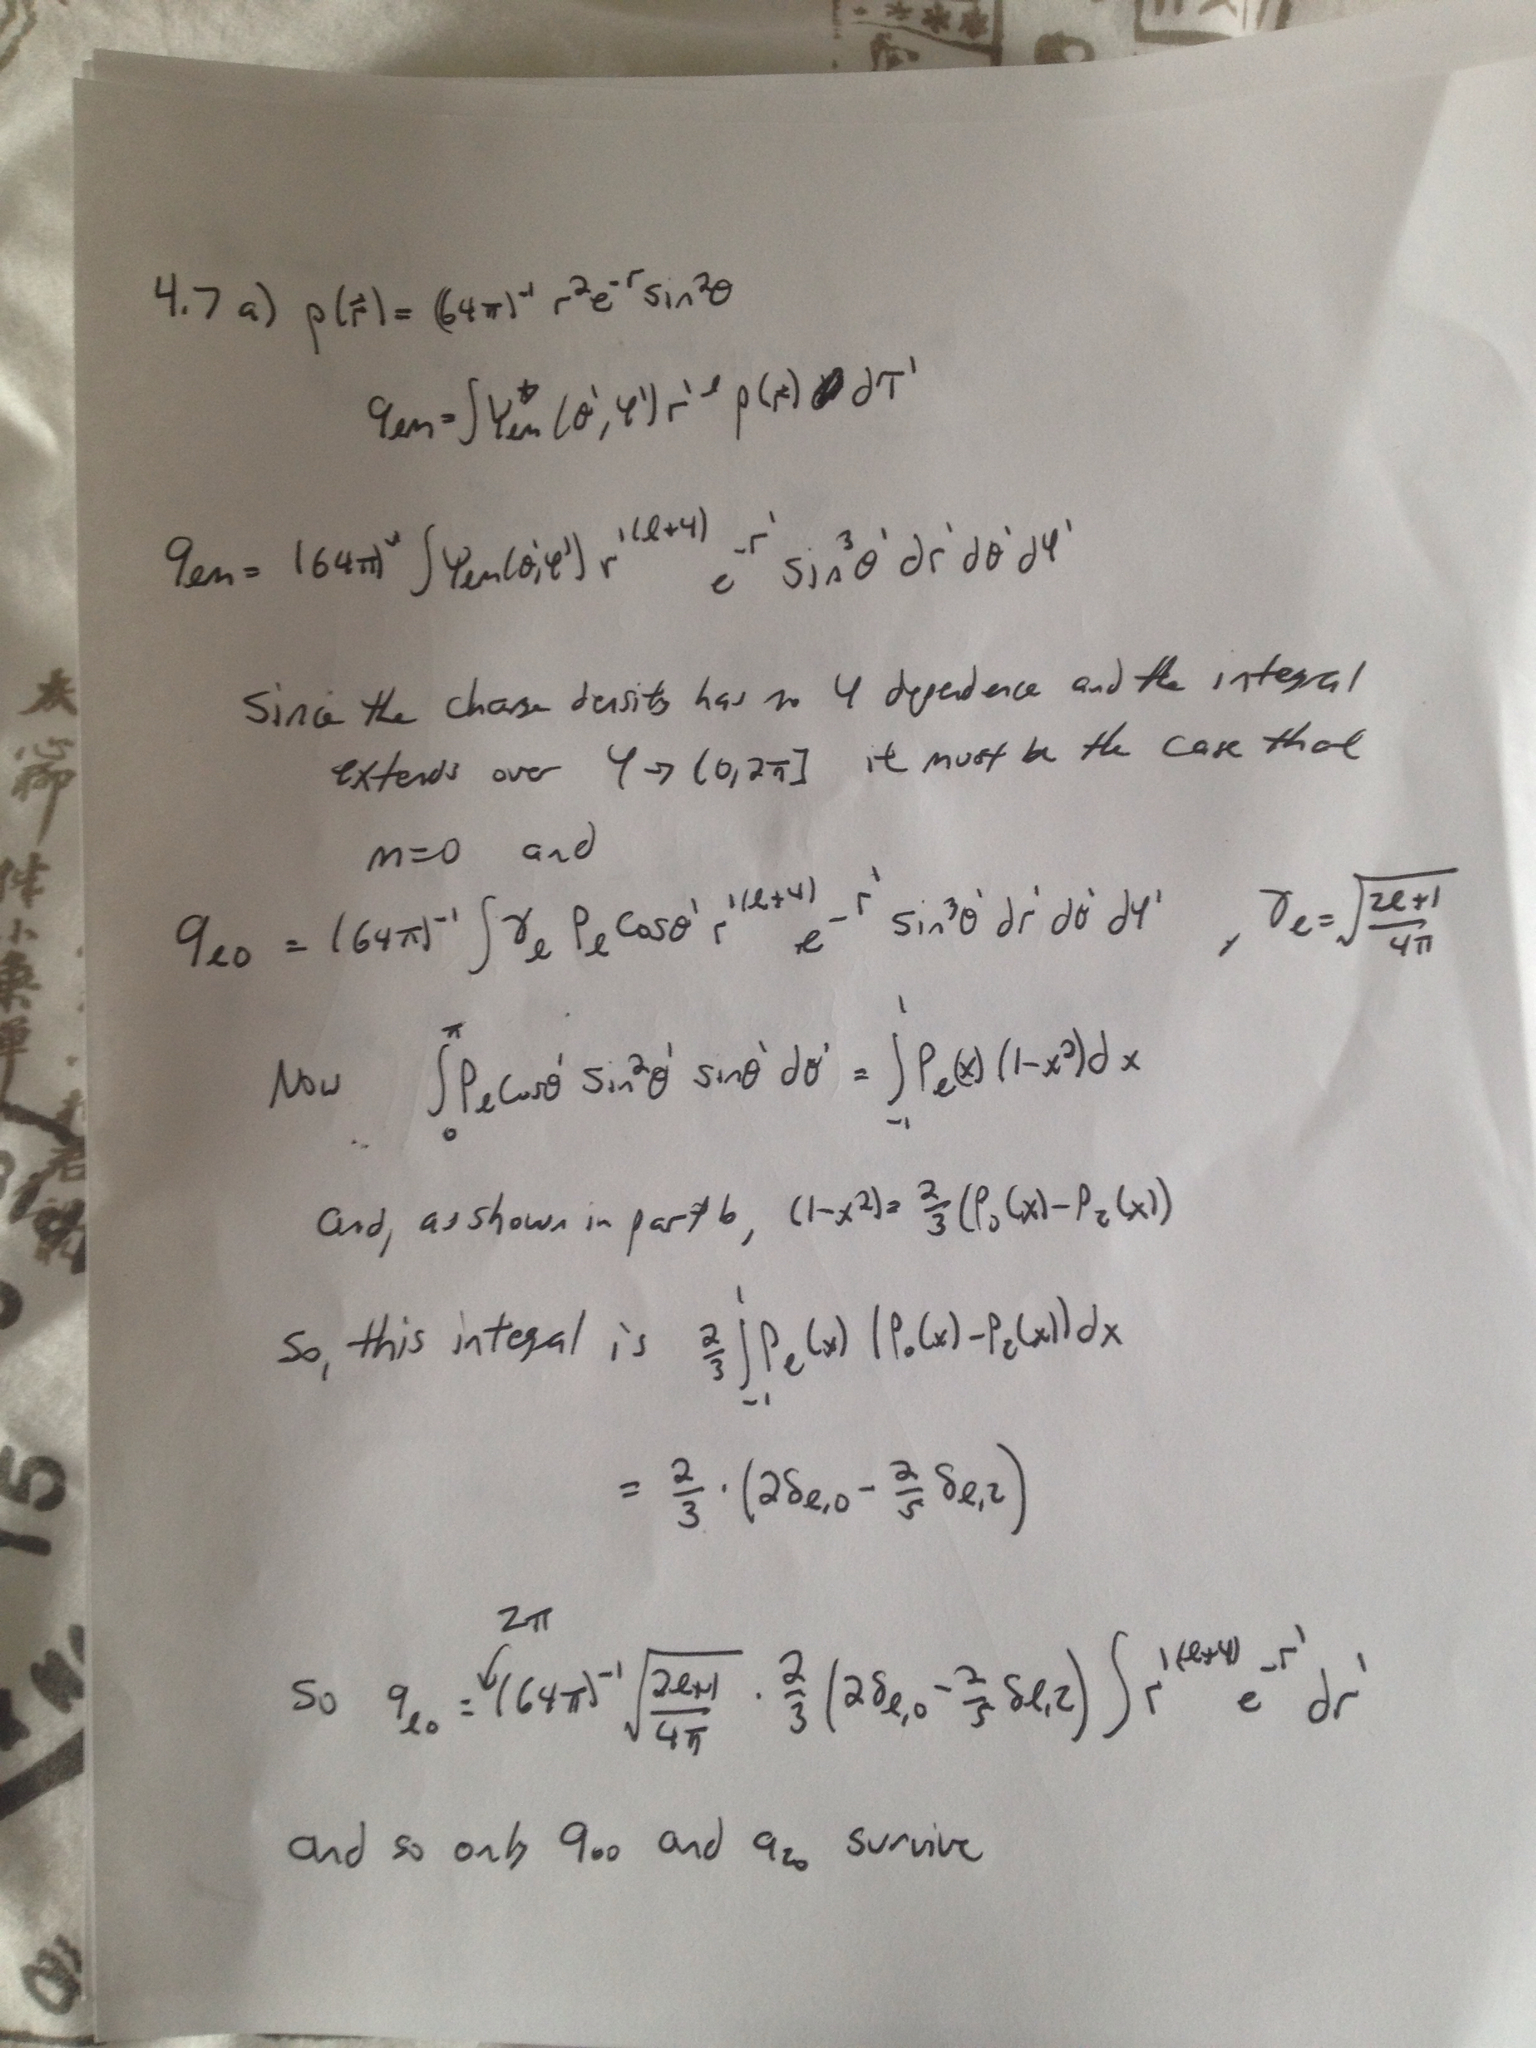 4.7 a) ρ(r⃗) = (64π)⁻¹ r²e⁻ʳ sin²θ
qℓm = ∫Yℓm*(θ',φ') r'ˡ ρ(r⃗) dτ'
qℓm = (64π)⁻¹ ∫Yℓm(θ',φ') r'^(ℓ+4) e^-r' sin³θ' dr' dθ' dφ'
Since the charge density has no φ dependence and the integral
extends over φ → (0,2π] it must be the case that
m=0 and
qℓ0 = (64π)⁻¹ ∫γℓ Pℓ cosθ' r'^(ℓ+4) e^-r' sin³θ' dr' dθ' dφ' , γℓ = √((2ℓ+1)/4π)
Now ∫₀^π Pℓ cosθ' sin²θ' sinθ' dθ' = ∫₋₁^1 Pℓ(x) (1-x²)dx
and, as shown in part b, (1-x²) = 2/3 (P₀(x)-P₂(x))
So, this integral is 2/3 ∫₋₁^1 Pℓ(x) (P₀(x)-P₂(x))dx
= 2/3 · (2δℓ,0 - 2/5 δℓ,2)
2π
So qℓ0 = (64π)⁻¹ √((2ℓ+1)/4π) · 2/3 (2δℓ,0 - 2/5 δℓ,2) ∫ r'^(ℓ+4) e^-r' dr'
and so only q₀₀ and q₂₀ survive
15